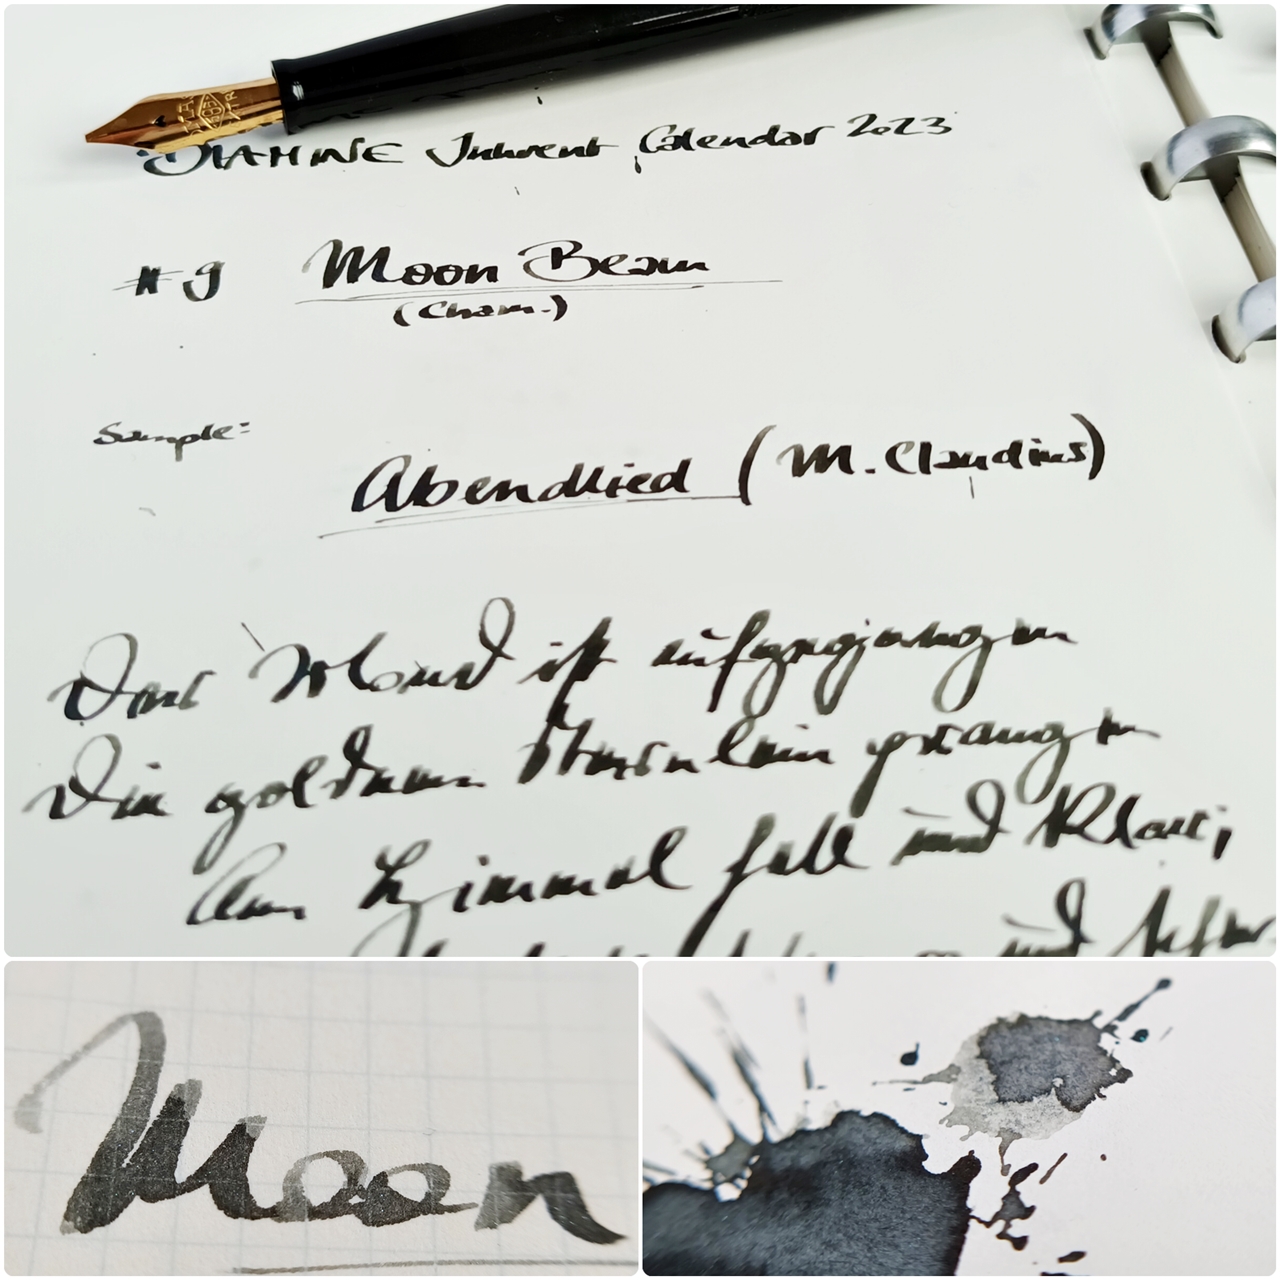 DIAMINE Inkvent Calendar 2023
#9 Moon Beam
(Cham.)
Sample:
Abendlied (M. Claudius)
Der Mond ist aufgegangen
Die goldnen Sternlein prangen
Am Himmel hell und klar;
und
Moon